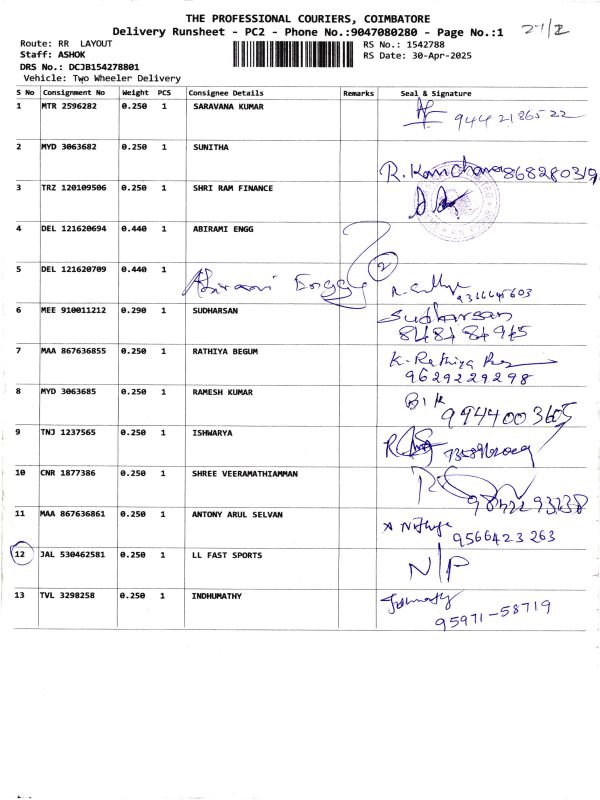 THE PROFESSIONAL COURIERS, COIMBATORE
Delivery Runsheet - PC2 - Phone No.:9047080280 - Page No.:1
Route: RR LAYOUT
Staff: ASHOK
DRS No.: DCJB154278801
Vehicle: Two Wheeler Delivery
RS No.: 1542788
RS Date: 30-Apr-2025
S No Consignment No Weight PCS Consignee Details Remarks Seal & Signature
1 MTR 2596282 0.250 1 SARAVANA KUMAR 9442186522
2 MYD 3063682 0.250 1 SUNITHA
R. Kanchana
3 TRZ 120109506 0.250 1 SHRI RAM FINANCE
4 DEL 121620694 0.440 1 ABIRAMI ENGG
5 DEL 121620709 0.440 1 2
Abirami Engg
6 MEE 910011212 0.290 1 SUDHARSAN Sudharsan
848484945
7 MAA 867636855 0.250 1 RATHIYA BEGUM K. Rathiya
9629229298
8 MYD 3063685 0.250 1 RAMESH KUMAR
9944003605
9 TNJ 1237565 0.250 1 ISHWARYA
10 CNR 1877386 0.250 1 SHREE VEERAMATHIAMMAN
11 MAA 867636861 0.250 1 ANTONY ARUL SELVAN
9566423263
12 JAL 530462581 0.250 1 LL FAST SPORTS N/P
13 TVL 3298258 0.250 1 INDHUMATHY
95971-58719